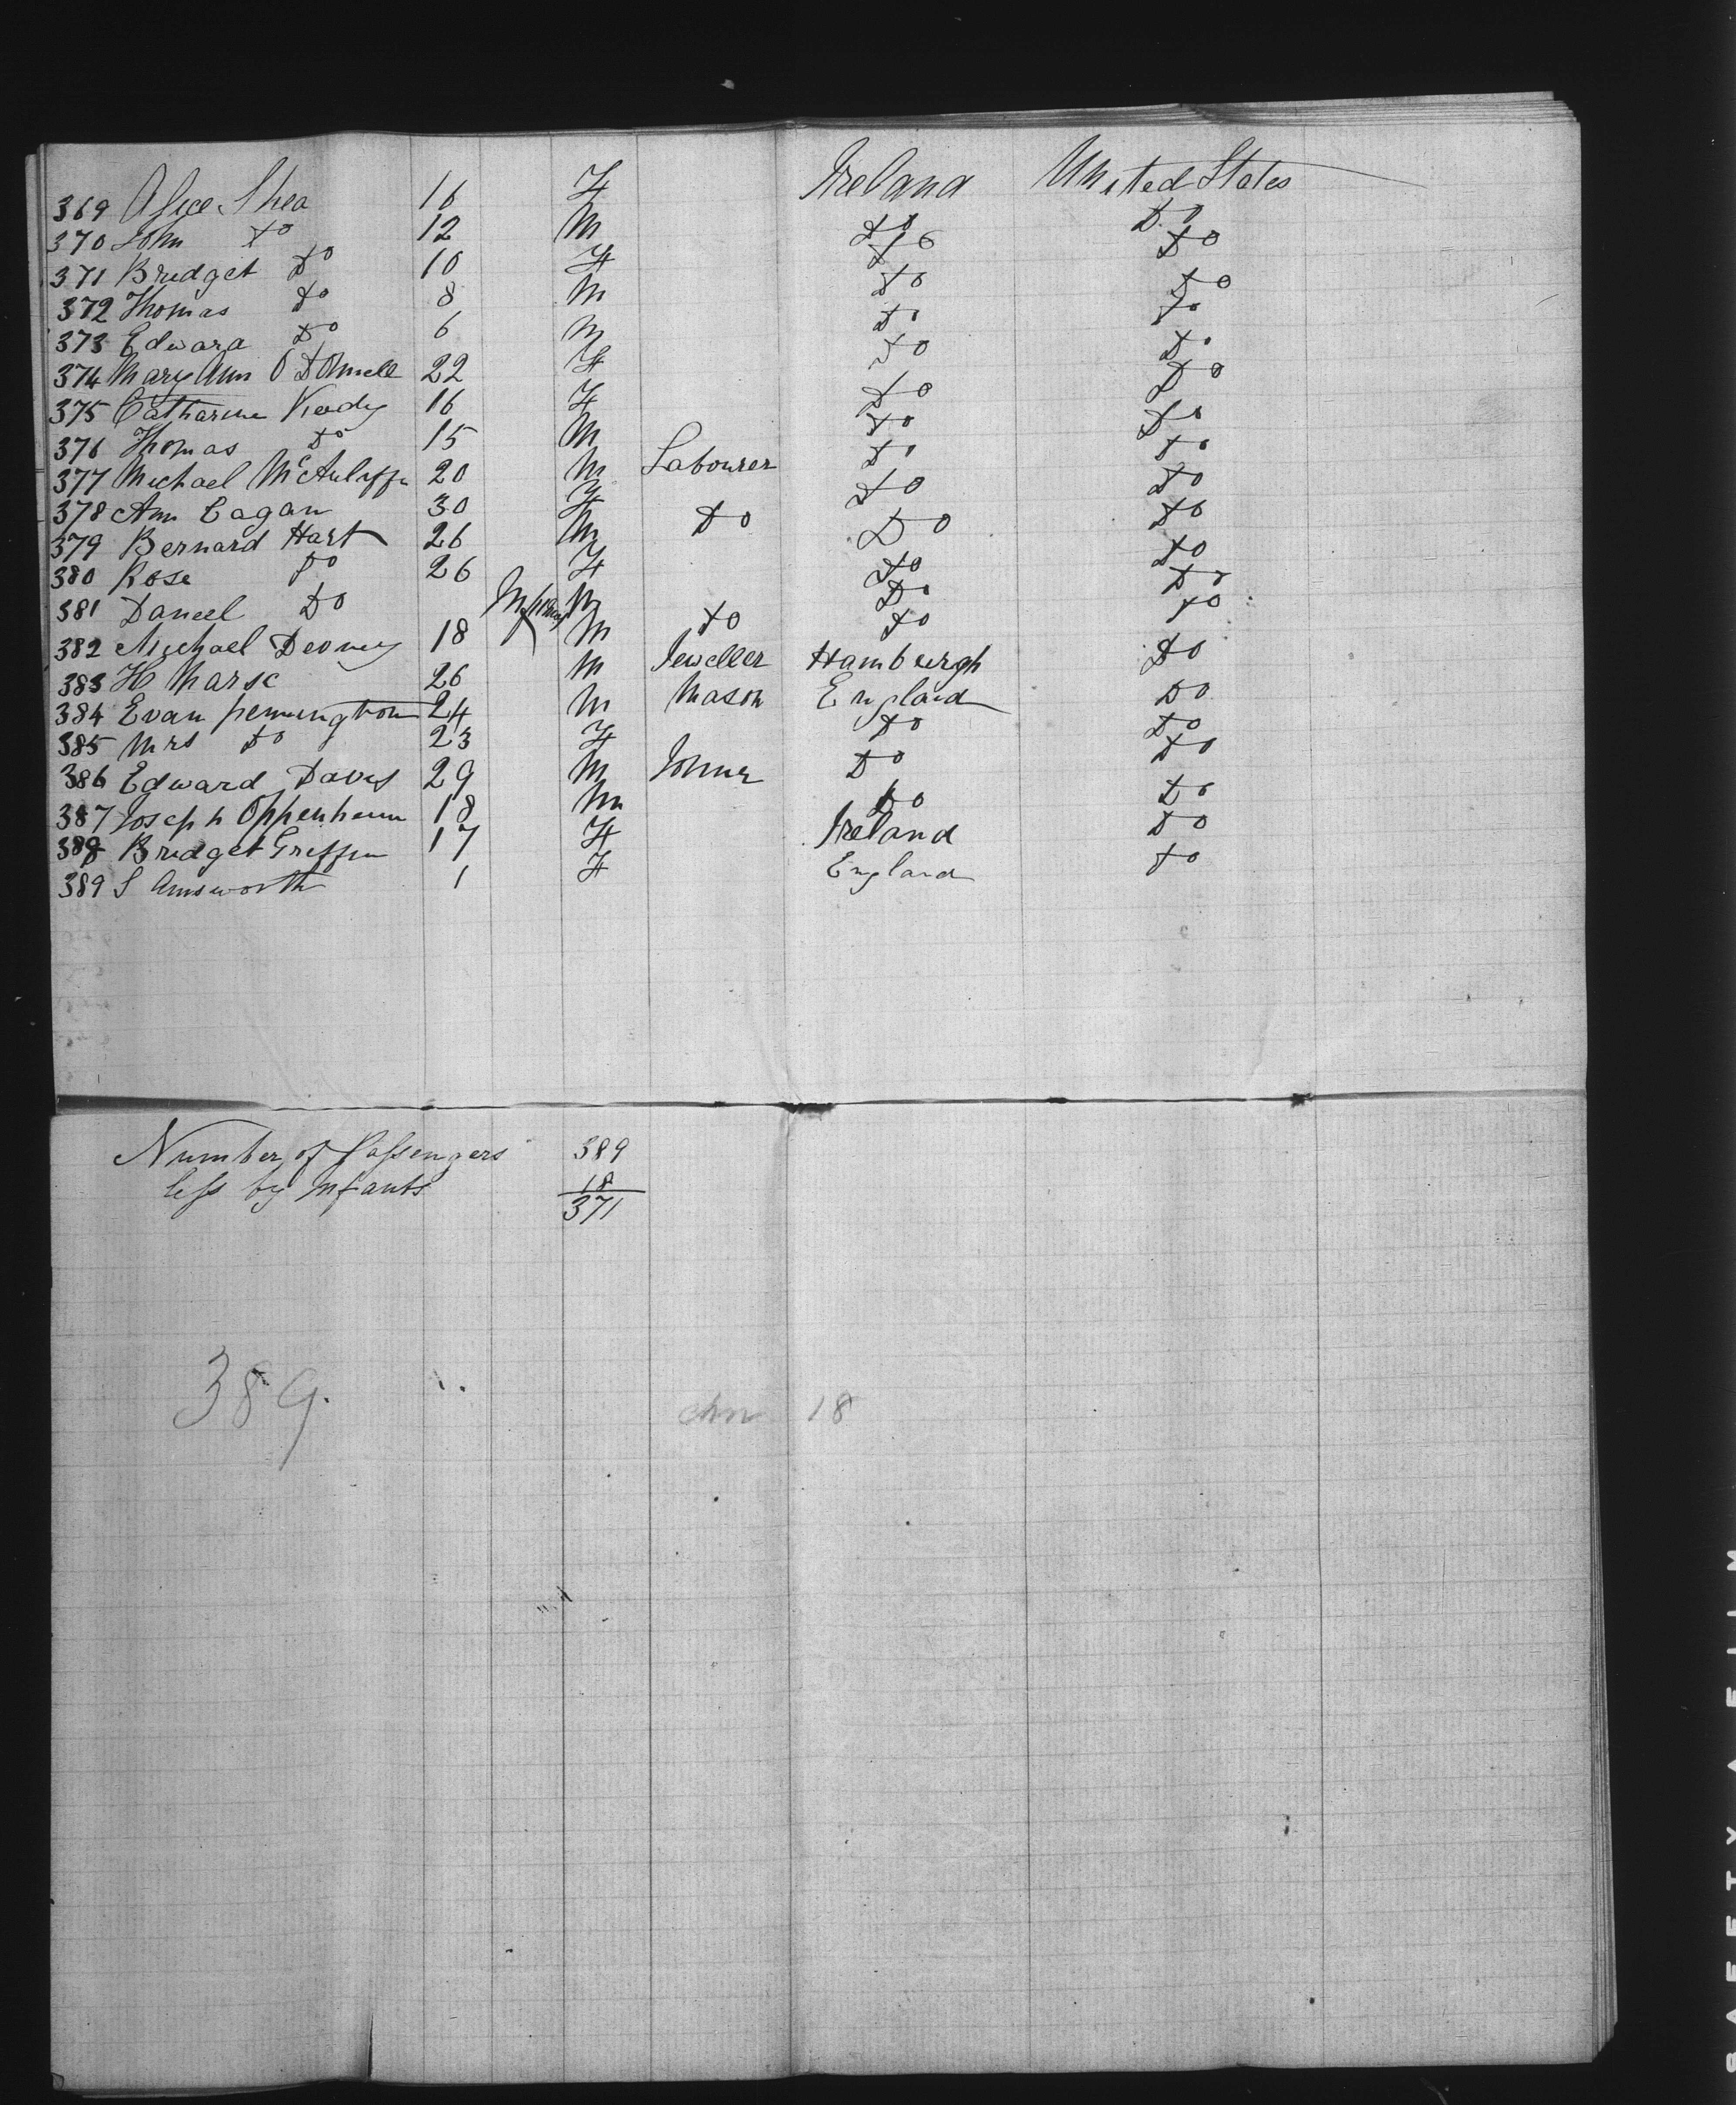 369 Alice Shea 16 F Ireland United States
370 John Do 12 M Do Do
371 Bridget Do 10 F Do Do
372 Thomas Do 8 M Do Do
373 Edward Do 6 M Do Do
374 Mary Ann O'Donnell 22 F Do Do
375 Catharine 16 F Do Do
376 Thomas Do 15 M Do Do
377 Michael McAuliffe 20 M Labourer Do Do
378 Ann Eagan 30 F Do Do
379 Bernard Hart 26 M Do Do Do
380 Rose Do 26 F Do Do
381 Daniel Do M Do Do
382 Michael 18 M Do Do Do
383 H 26 M Jeweller Hamburgh Do
384 Evan Pennington 24 M Mason England Do
385 Mrs Do 23 F Do Do
386 Edward Davis 29 M Joiner Do Do
387 Joseph Oppenheim 18 M Do Do
388 Bridget Griffin 17 F Ireland Do
389 S Ainsworth 1 F England Do
Number of Passengers 389
less by Infants 18
371
389. 18
SAFETY FILM